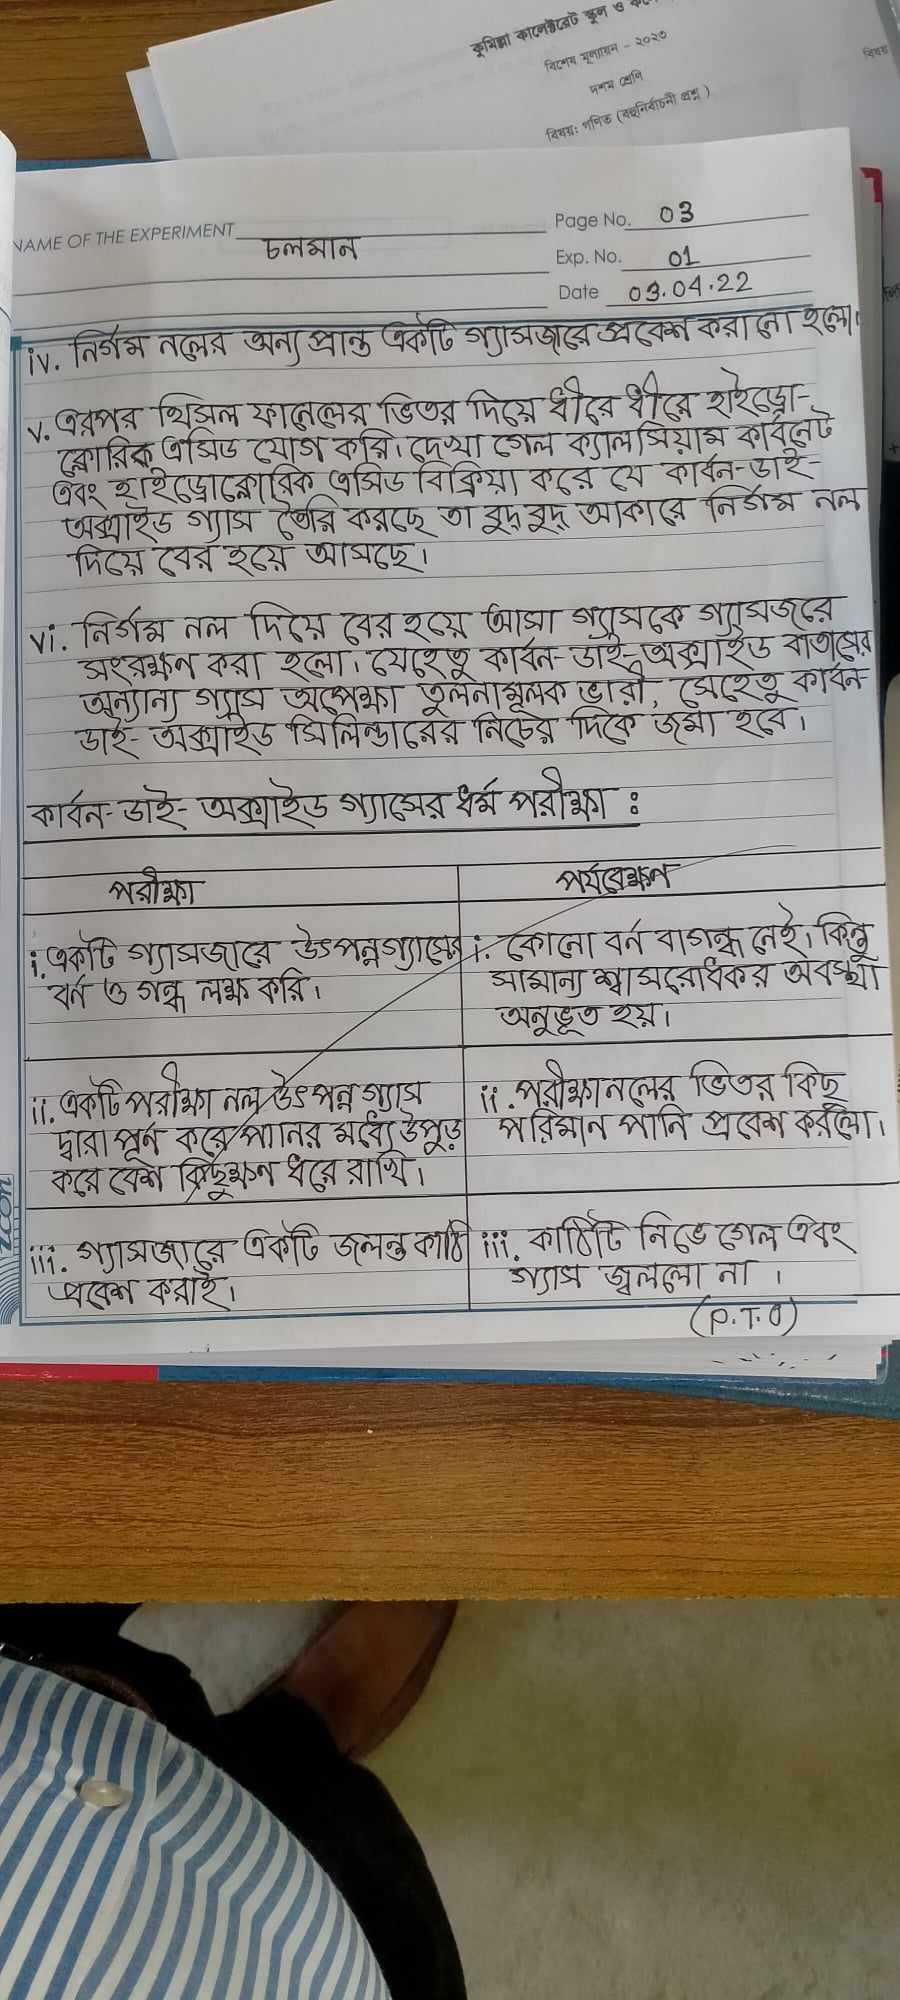 কুমিল্লা কালেক্টরেট স্কুল ও
বিশেষ মূল্যায়ন - ২০২৩
দশম শ্রেণি
বিষয়: গণিত (বহুনির্বাচনী প্রশ্ন)
বিষয়
NAME OF THE EXPERIMENT চলমান
Page No. 03
Exp. No. 01
Date 03.04.22
iv. নির্গম নলের অন্য প্রান্ত একটি গ্যাসজারে প্রবেশ করানো হলো।
v. এরপর থিসল ফানেলের ভিতর দিয়ে ধীরে ধীরে হাইড্রো-
ক্লোরিক এসিড যোগ করি। দেখা গেল ক্যালসিয়াম কার্বনেট
এবং হাইড্রোক্লোরিক এসিড বিক্রিয়া করে যে কার্বন-ডাই-
অক্সাইড গ্যাস তৈরি করছে তা বুদ্বুদ্ আকারে নির্গম নল
দিয়ে বের হয়ে আসছে।
vi. নির্গম নল দিয়ে বের হয়ে আসা গ্যাসকে গ্যাসজরে
সংরক্ষন করা হলো। যেহেতু কার্বন-ডাই-অক্সাইড বাতাসের
অন্যান্য গ্যাস অপেক্ষা তুলনামূলক ভারী, সেহেতু কার্বন-
ডাই-অক্সাইড সিলিন্ডারের নিচের দিকে জমা হবে।
কার্বন-ডাই-অক্সাইড গ্যাসের ধর্ম পরীক্ষা :
পরীক্ষা
পর্যবেক্ষন
i. একটি গ্যাসজারে উৎপন্নগ্যাসের
বর্ন ও গন্ধ লক্ষ করি।
i. কোনো বর্ন বাগন্ধ নেই। কিন্তু
সামান্য শ্বাসরোধকর অবস্থা
অনুভূত হয়।
ii. একটি পরীক্ষা নল উৎপন্ন গ্যাস
দ্বারা পূর্ন করে পানির মধ্যে উপুড়
করে বেশ কিছুক্ষণ ধরে রাখি।
ii. পরীক্ষানলের ভিতর কিছু
পরিমান পানি প্রবেশ করলো।
iii. গ্যাসজারে একটি জলন্ত কাঠি
প্রবেশ করাই।
iii. কাঠিটি নিভে গেল এবং
গ্যাস জ্বললো না।
(P.T.O)
icon